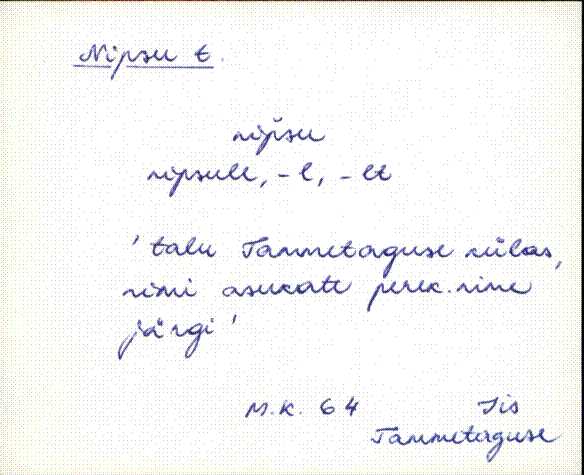 Nipsu t.
nip̌su
nipsule, -l, -lt
' talu Tammetaguse külas,
nimi asukate perek.nime
järgi '
M.K. 64 Iis
Tammetaguse